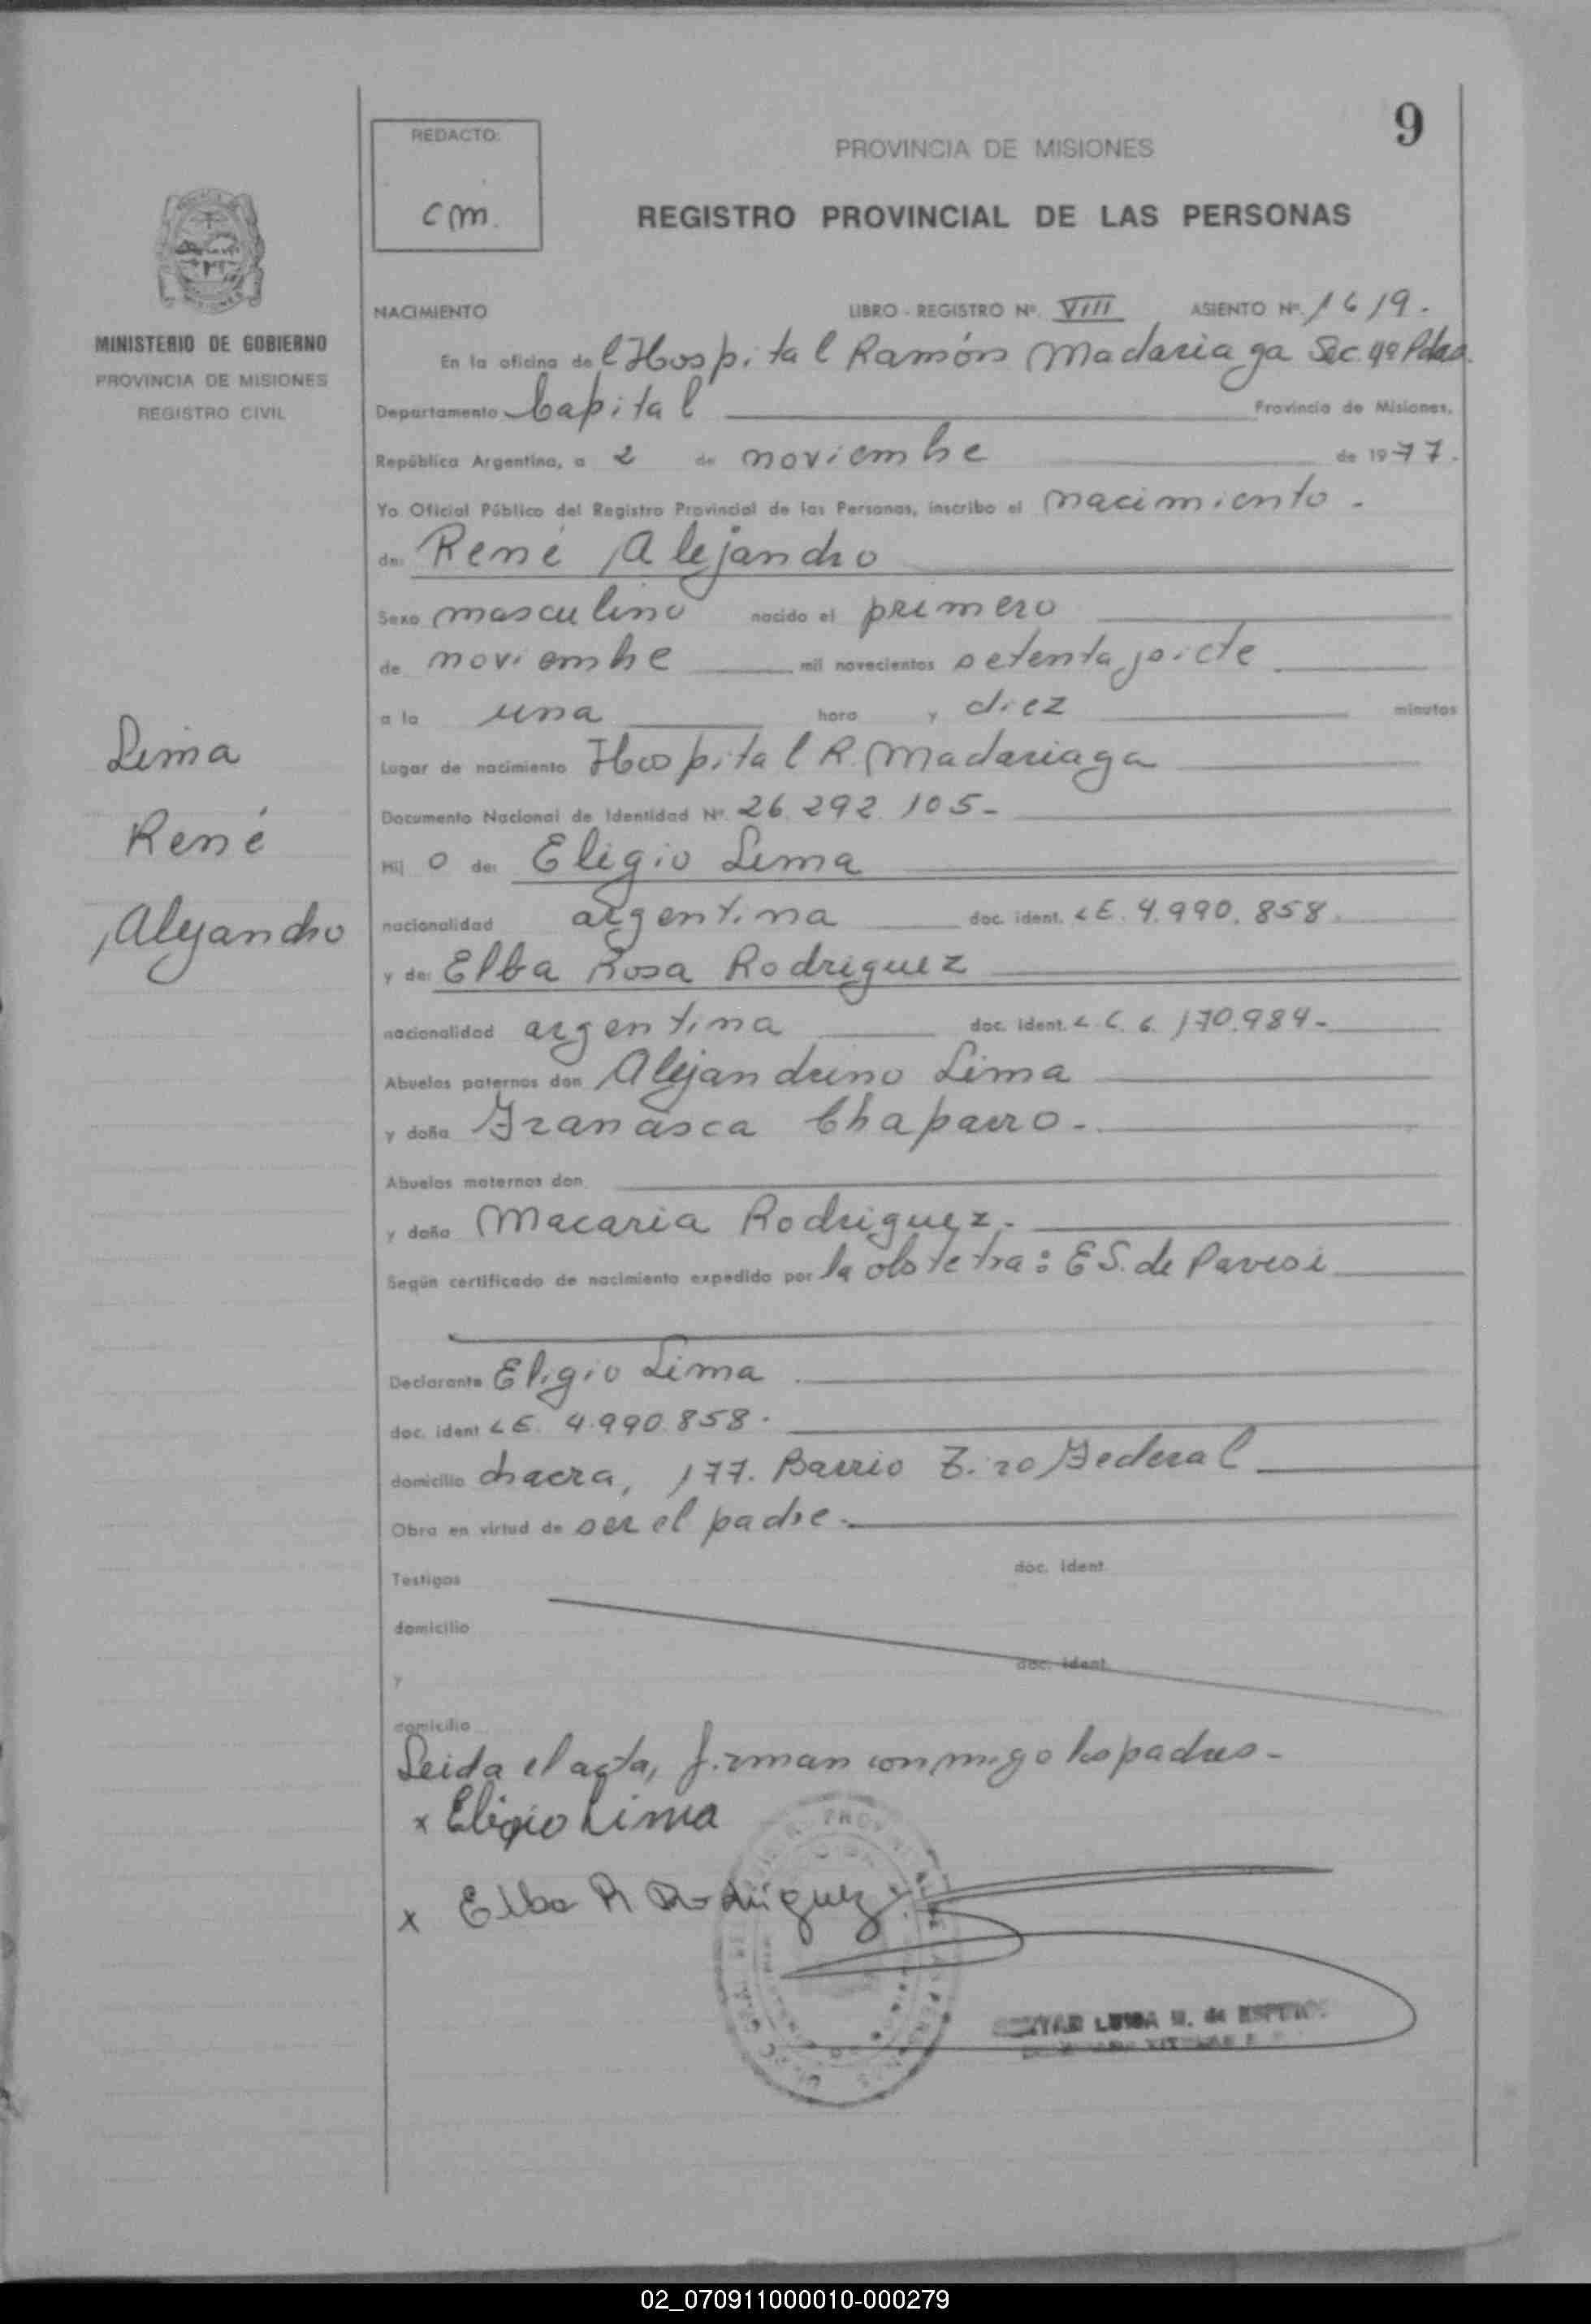 9
REDACTO:
cm.
PROVINCIA DE MISIONES
REGISTRO PROVINCIAL DE LAS PERSONAS
MINISTERIO DE GOBIERNO
PROVINCIA DE MISIONES
REGISTRO CIVIL
Lima
René
Alejandro
NACIMIENTO LIBRO - REGISTRO Nº. VIII ASIENTO Nº. 1619.
En la oficina del Hospital Ramón Madariaga Sec. 4º Pdas.
Departamento Capital Provincia de Misiones,
República Argentina, a 2 de noviembre de 1977.
Yo Oficial Público del Registro Provincial de las Personas, inscribo el nacimiento.
de: René Alejandro
Sexo masculino nacido el primero
de noviembre mil novecientos setenta y siete
a la una hora y diez minutos
Lugar de nacimiento Hospital R. Madariaga
Documento Nacional de Identidad Nº. 26.292.105-
Hij o de: Eligio Lima
nacionalidad argentina doc. ident. LE. 4.990.858.
y de: Elba Rosa Rodriguez
nacionalidad argentina doc. ident. L C. 6.170.984-
Abuelos paternos don Alejandrino Lima
y doña Chaparro.
Abuelos maternos don
y doña Macaria Rodriguez.
Según certificado de nacimiento expedido por la obstetra: E S. de Pavesi
Declarante Eligio Lima
doc. ident LE. 4.990.858.
domicilio chacra, 177. Barrio Federal
Obra en virtud de ser el padre.
Testigos doc. ident.
domicilio
y doc. ident.
domicilio
Leida el acta, firman conmigo los padres-
x Eligio Lima
x Elba R Rodriguez
LUISA M. de
02_070911000010-000279